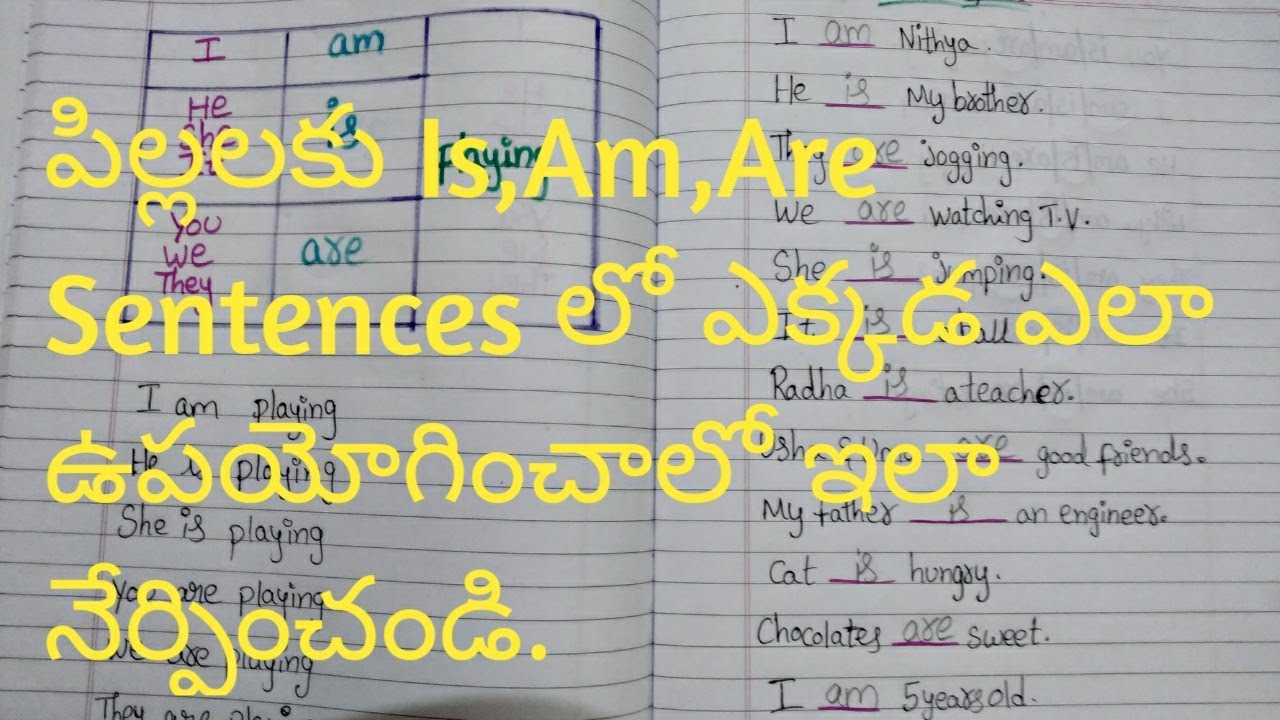 పిల్లలకు Is,Am,Are
Sentences లో ఎక్కడ ఎలా
ఉపయోగించాలో ఇలా
నేర్పించండి.
I am
He is
She
playing
You
We are
They
I am playing
He is playing
She is playing
You are playing
We are playing
They are
I am Nithya.
He is My brother.
They are jogging.
We are watching T.V.
She is jumping.
It is
Radha is a teacher.
are good friends.
My father is an engineer.
Cat is hungry.
Chocolates are sweet.
I am 5 years old.